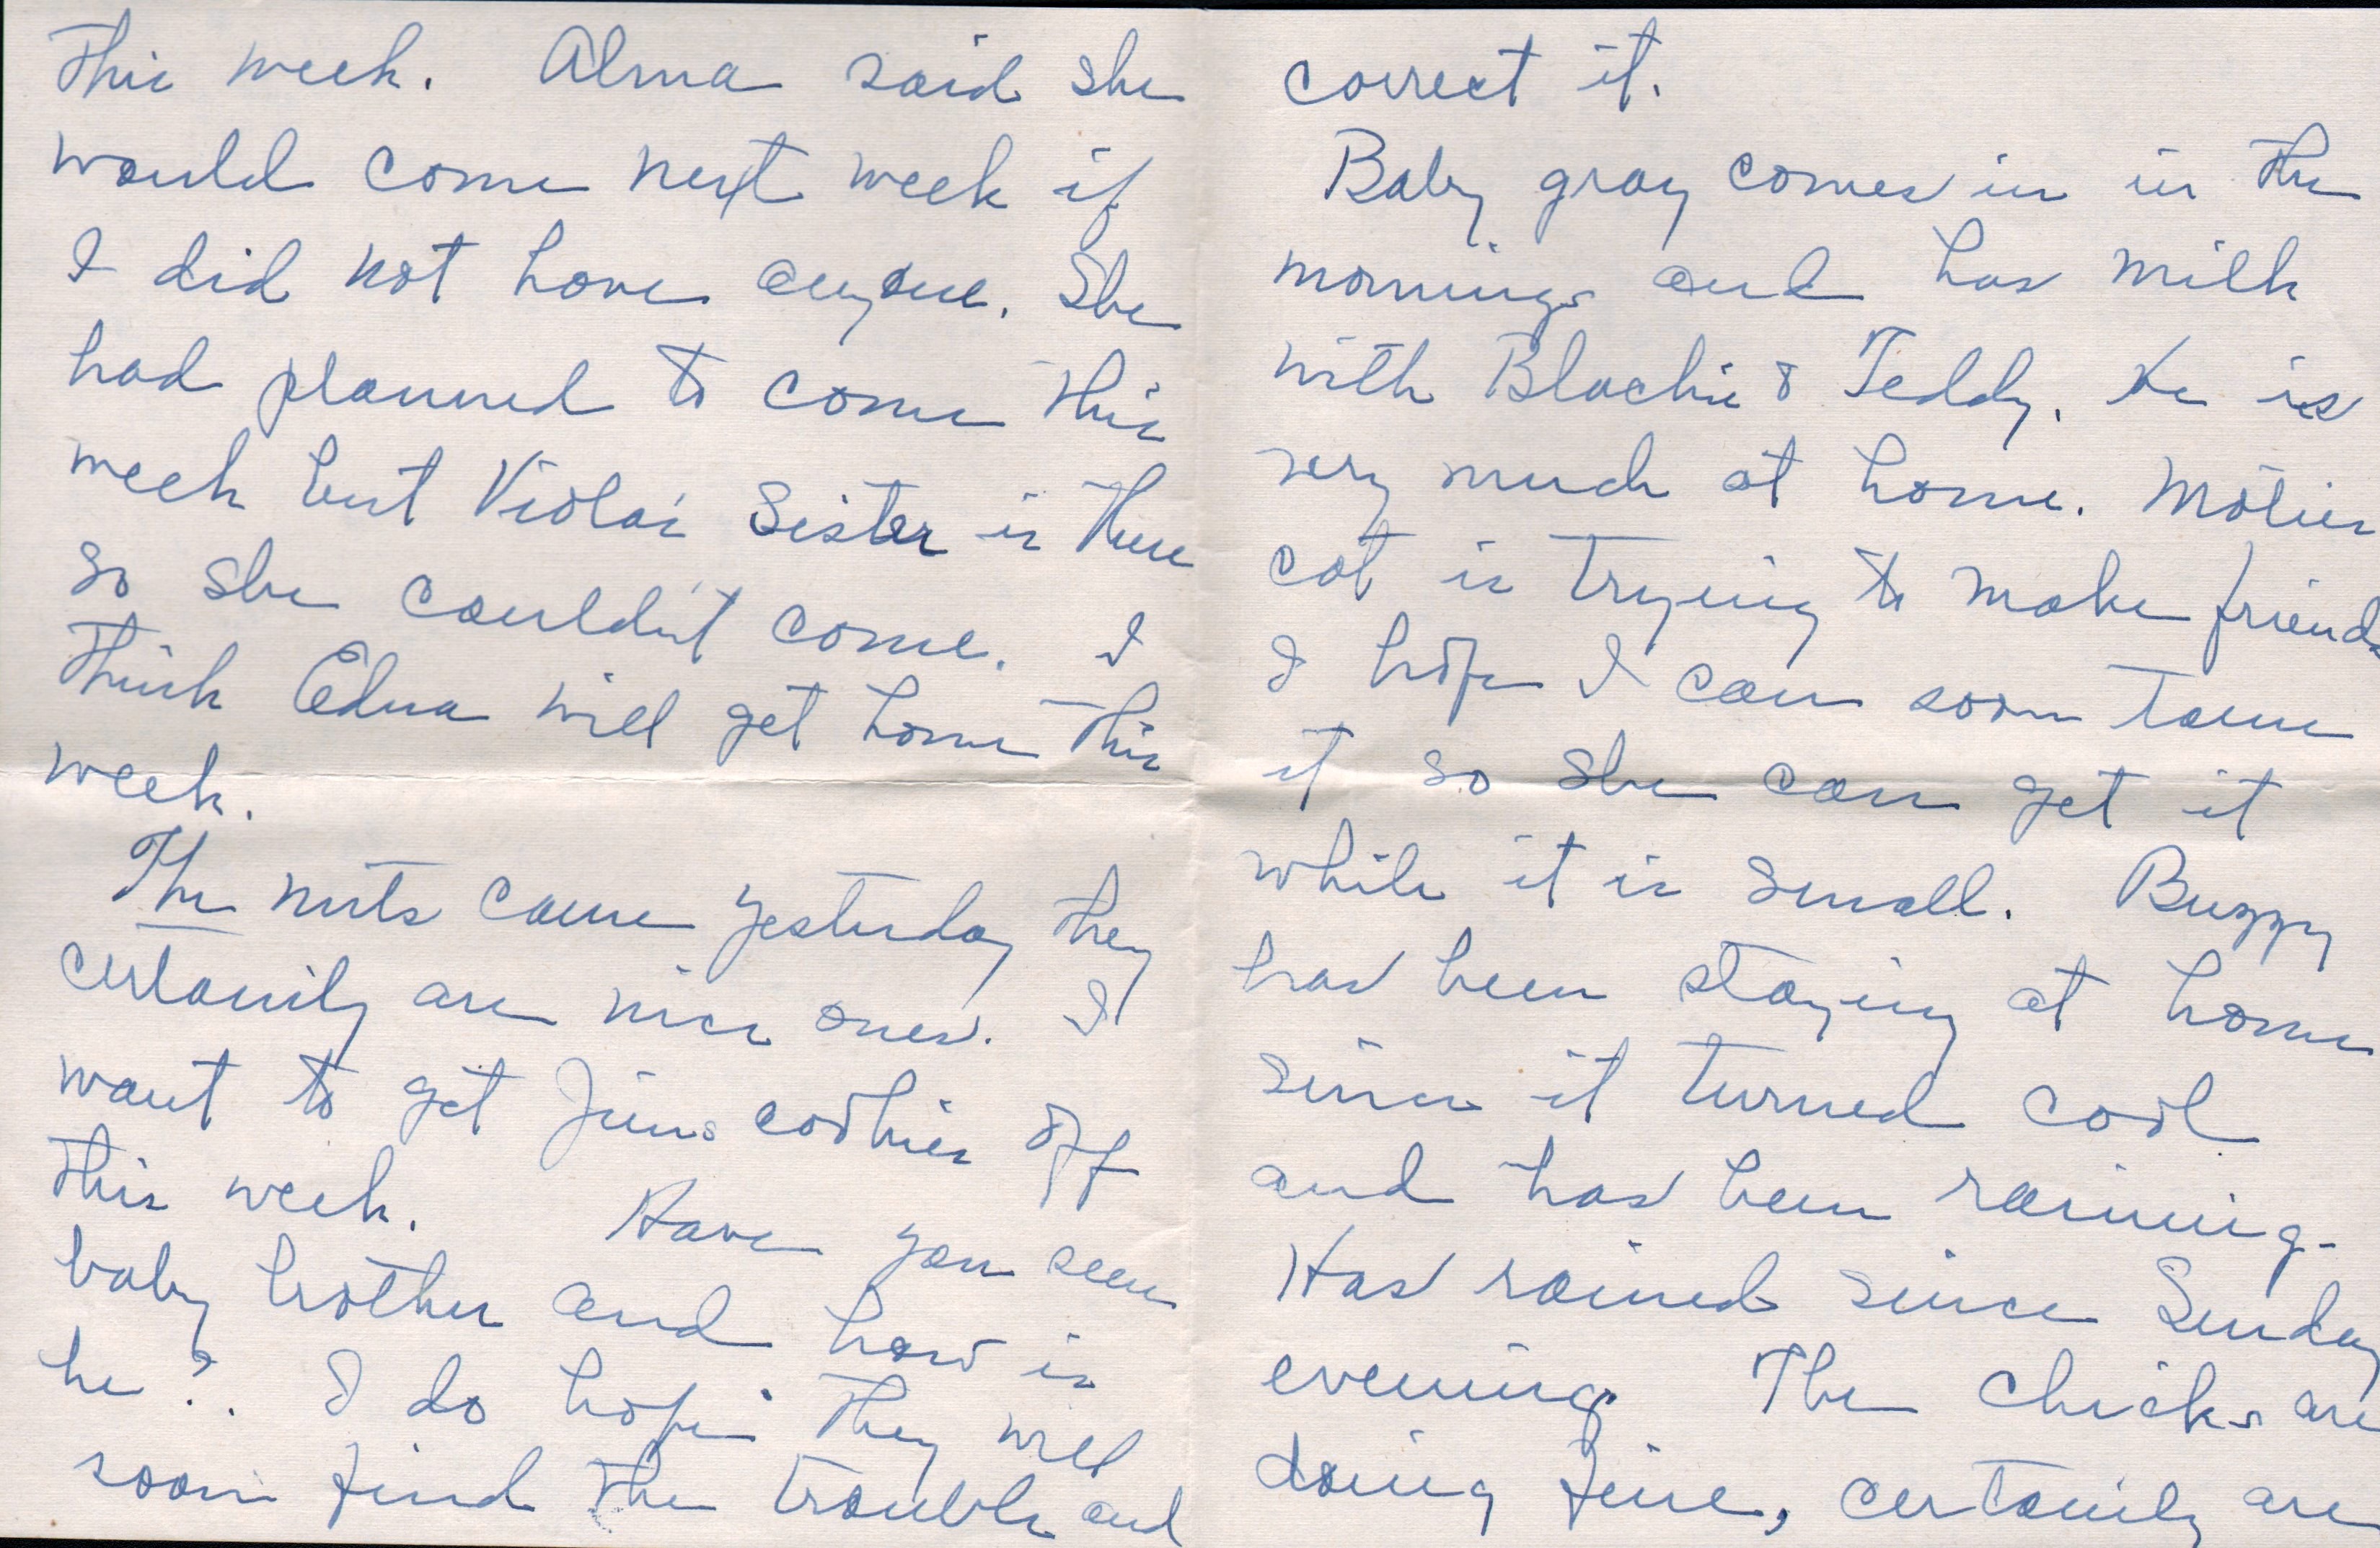 this week. Alma said she
would come next week if
I did not have anyone. She
had planned to come this
week but Viola's Sister is there
so she couldn't come. I
think Edna will get home this
week.
The nuts came yesterday they
certainily are nice ones. I
want to get Jims cookies off
this week. Have you seen
baby brother and how is
he?. I do hope they will
soon find the trouble and
correct it.
Baby gray comes in in the
mornings and has milk
with Blackie & Teddy. He is
very much at home. Mother
cat is trying to make friends
I hope I can soon tame
it so she can get it
while it is small. Buzzy
has been staying at home
since it turned cool
and has been raining.
Has rained since Sunday
evening. The chicks are
doing fine, certainily are